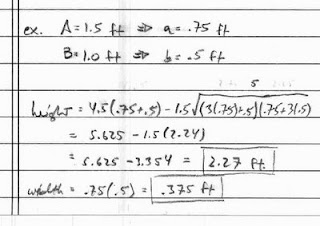 ex. A=1.5 ft ⇒ a=.75 ft
B=1.0 ft ⇒ b=.5 ft
5
height = 4.5(.75+.5) - 1.5√(3(.75)+.5)(.75+3(.5)
= 5.625 - 1.5(2.24)
= 5.625 - 3.354 = 2.27 ft
width = .75(.5) = .375 ft